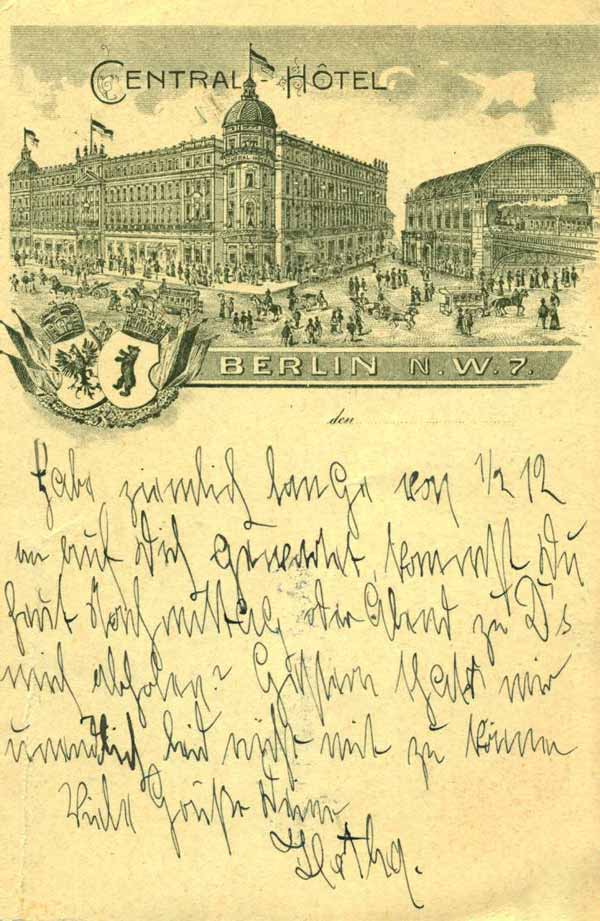 CENTRAL-HÔTEL
BERLIN N.W.7.
den
Habe ziemlich lange von 1/2 12
an auf Dich gewartet, kommst Du
heut Nachmittag oder Abend zu D's
mich abholen? Gestern that mir
unendlich leid nicht mit zu können
Viele Grüße Deine